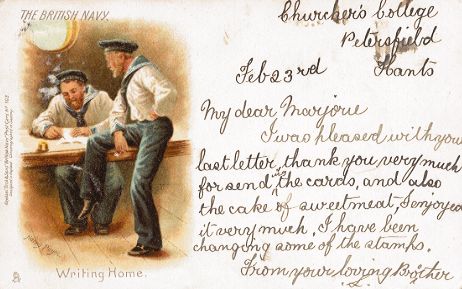 THE BRITISH NAVY.
Writing Home.
Churcher's College
Petersfield
Feb 23rd Hants
My dear Marjorie
I was pleased with your
last letter, thank you very much
for send the cards, and also
the cake of sweetmeat, I enjoyed
it very much, I have been
changing some of the stamps.
From your loving Brother